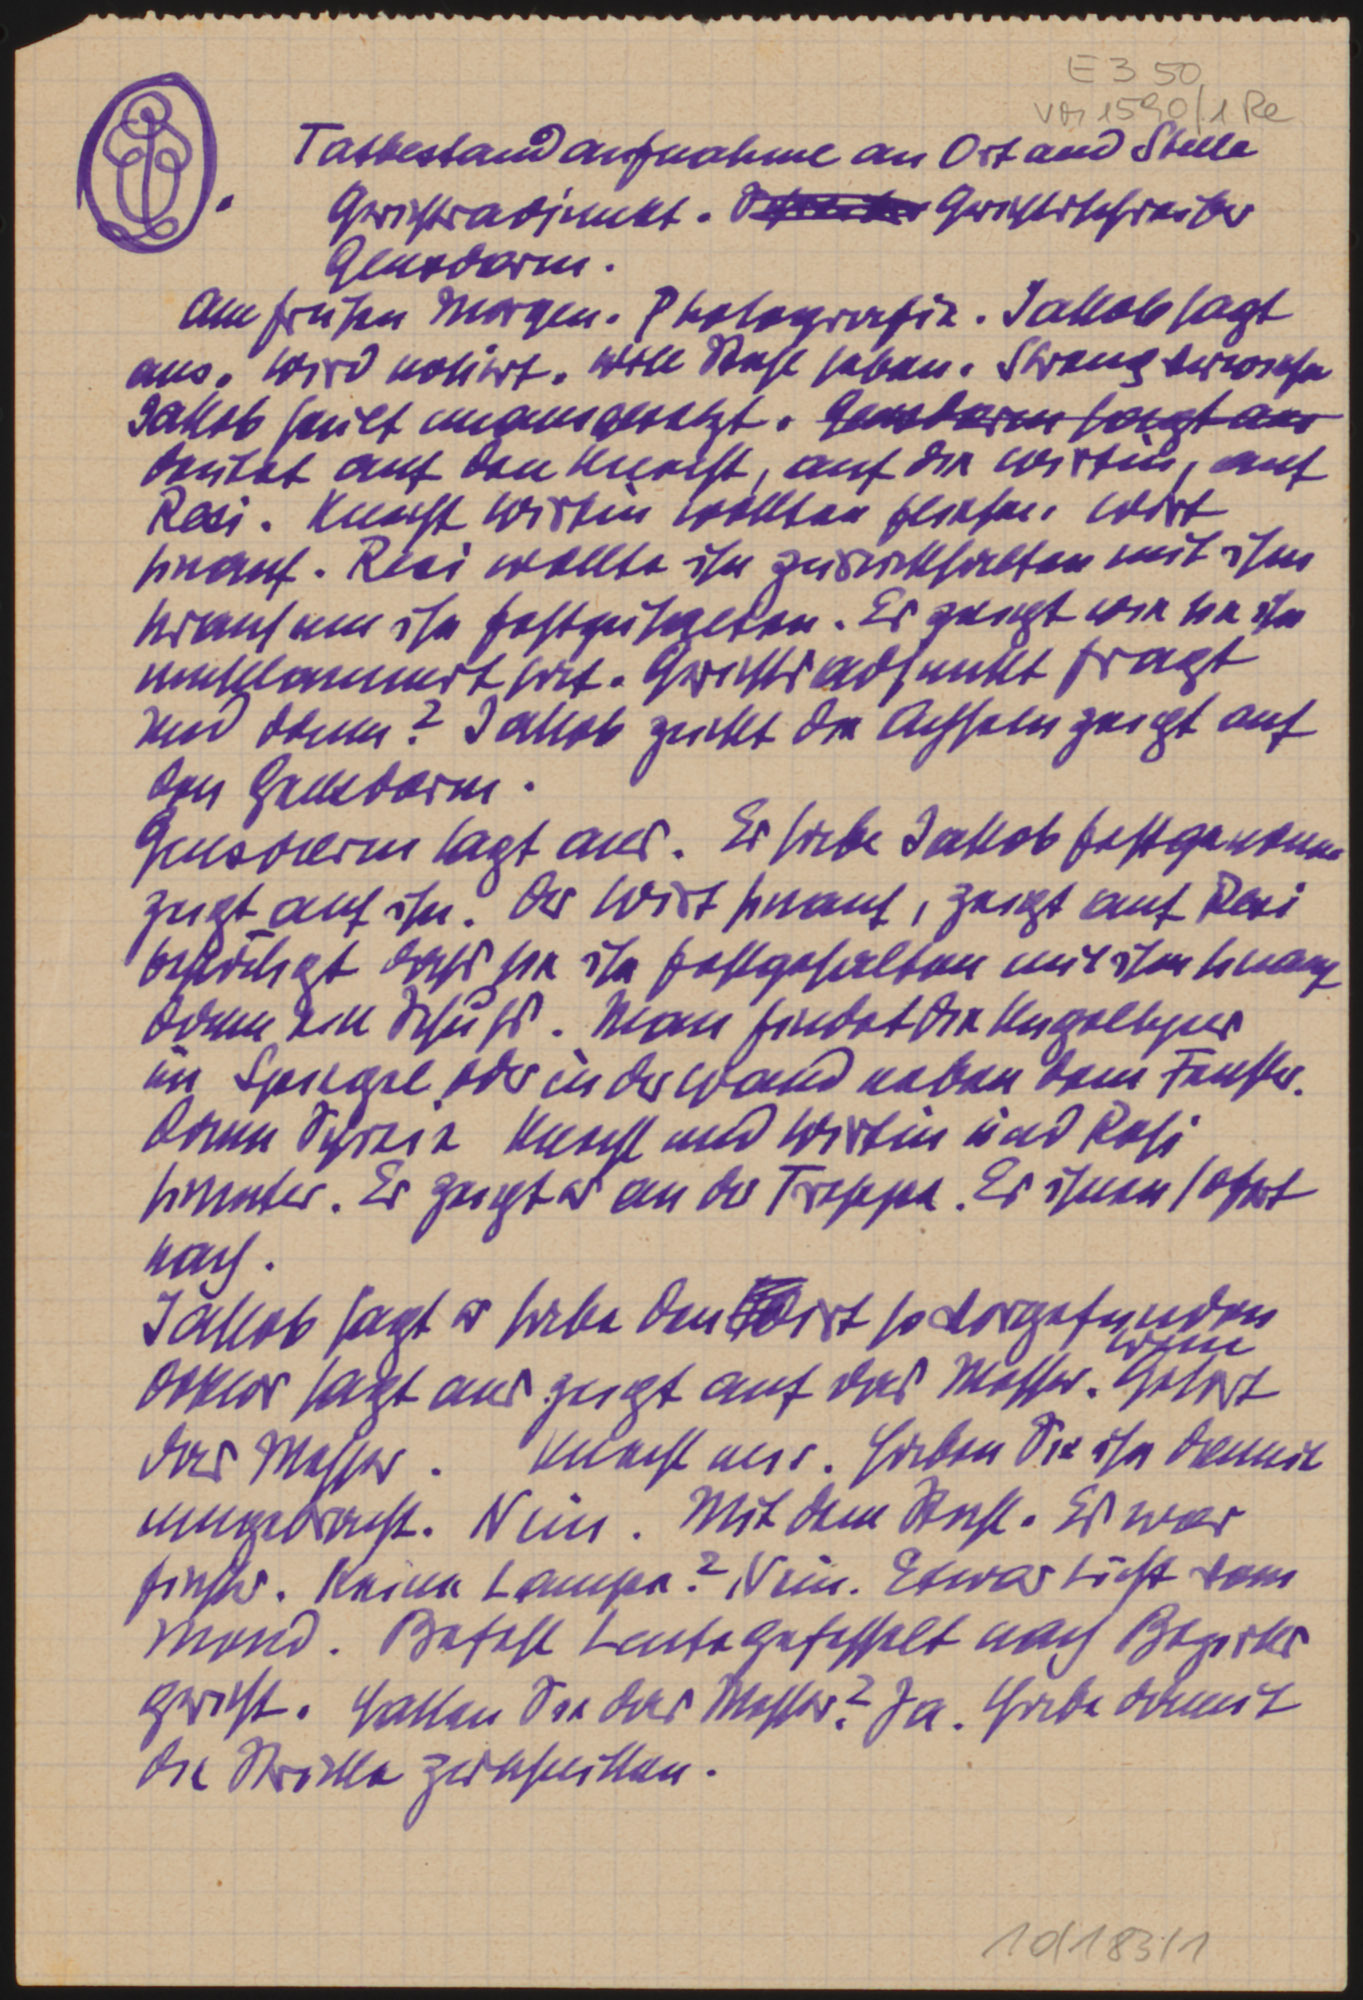 E 3 50
Vor 1590/1 Re
Tatbestandaufnahme an Ort und Stelle
Gerichtsadjunkt. Gerichtsschreiber
Gensdarm.
Am frühen Morgen. Photografie. Jakob sagt
aus. Wird notiert. Will haben. Streng verwiesen
Jakob heult unausgesetzt. Gensdarm sagt aus
deutet auf den Knecht, auf die Wirtin, auf
Resi. Knecht Wirtin wollten fliehen. Wirt
hinauf. Resi wollte ihn zurückhalten mit ihm
hinauf um ihn festzuhalten. Er zeigt wie sie ihn
umklammert hat. Gerichtsadjunkt fragt
und dann? Jakob zuckt die Achseln zeigt auf
den Gensdarm.
Gensdarm sagt aus. Er habe Jakob festgenommen
zeigt auf ihn. Der Wirt hinauf, zeigt auf Resi
bestätigt dass sie ihn festgehalten mit ihm hinauf
dann ein Schuss. Man findet die Kugelspur
im Spiegel oder in der Wand neben dem Fenster.
Dann Schreie Knecht und Wirtin und Resi
hinunter. Er zeigt es an der Treppe. Er ihnen sofort
nach.
Jakob sagt er habe den Wirt so vorgefunden
Doktor sagt aus zeigt auf das Messer. Gehört
wem
das Messer. Knecht mir. Haben Sie ihn damit
umgebracht. Nein. Mit dem. Es war
finster. Keine Lampe? Nein. Etwas Licht vom
Mond. Befehl Leute gefesselt nach Bezirks
gericht. Hatten Sie das Messer? Ja. Habe damit
die Stricke zerschnitten.
10/183/1